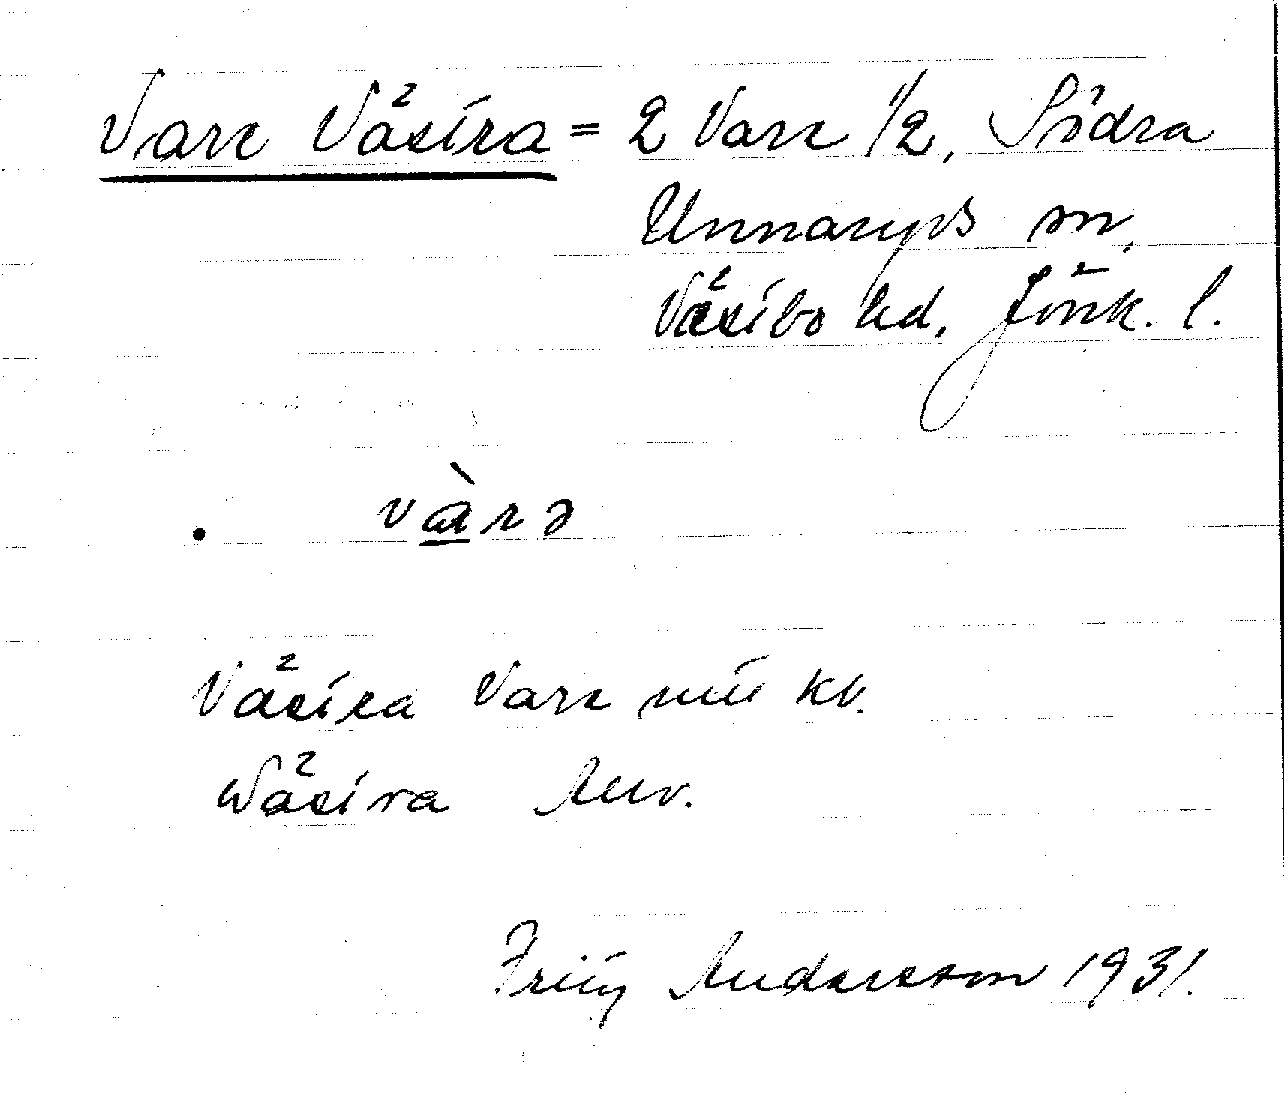 Vare Västra = 2 Vare 1/2, Södra
Unnaryds sn,
Västbo hd, Jönk. l.
vàrə
Västra Vare mtl kv.
Wästra
Andersson 1931.